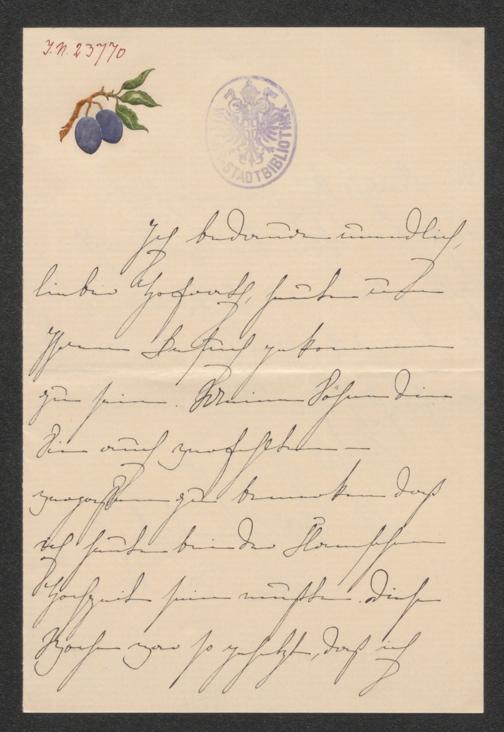 I.N. 23770
STADTBIBLIOTHEK
Ich bedaure unendlich,
lieber Hofrath, heute um
Ihren Besuch gekommen
zu sein. Meine Söhne die
Sie auch verfehlten –
vergaßen zu bemerken daß
ich heute bei der
Hochzeit sein mußte. Diese
Woche war so gehetzt, daß ich